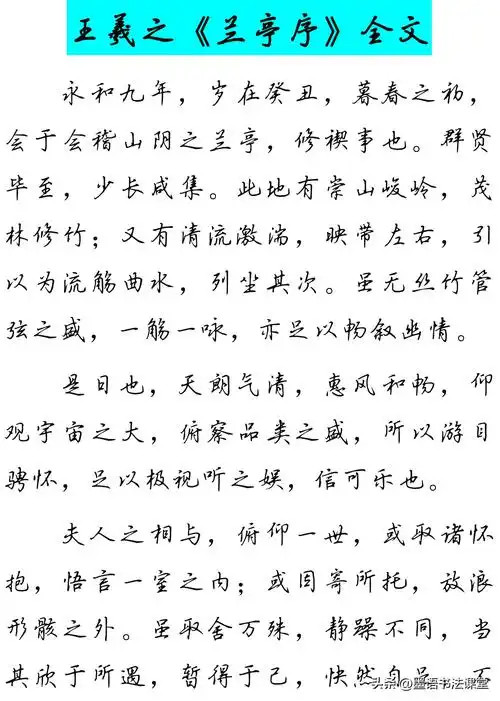 王羲之《兰亭序》全文
永和九年，岁在癸丑，暮春之初，
会于会稽山阴之兰亭，修禊事也。群贤
毕至，少长咸集。此地有崇山峻岭，茂
林修竹；又有清流激湍，映带左右，引
以为流觞曲水，列坐其次。虽无丝竹管
弦之盛，一觞一咏，亦足以畅叙幽情。
是日也，天朗气清，惠风和畅，仰
观宇宙之大，俯察品类之盛，所以游目
骋怀，足以极视听之娱，信可乐也。
夫人之相与，俯仰一世，或取诸怀
抱，悟言一室之内；或因寄所托，放浪
形骸之外。虽取舍万殊，静躁不同，当
其欣于所遇，暂得于己，快然自足，不
头条@墨语书法课堂